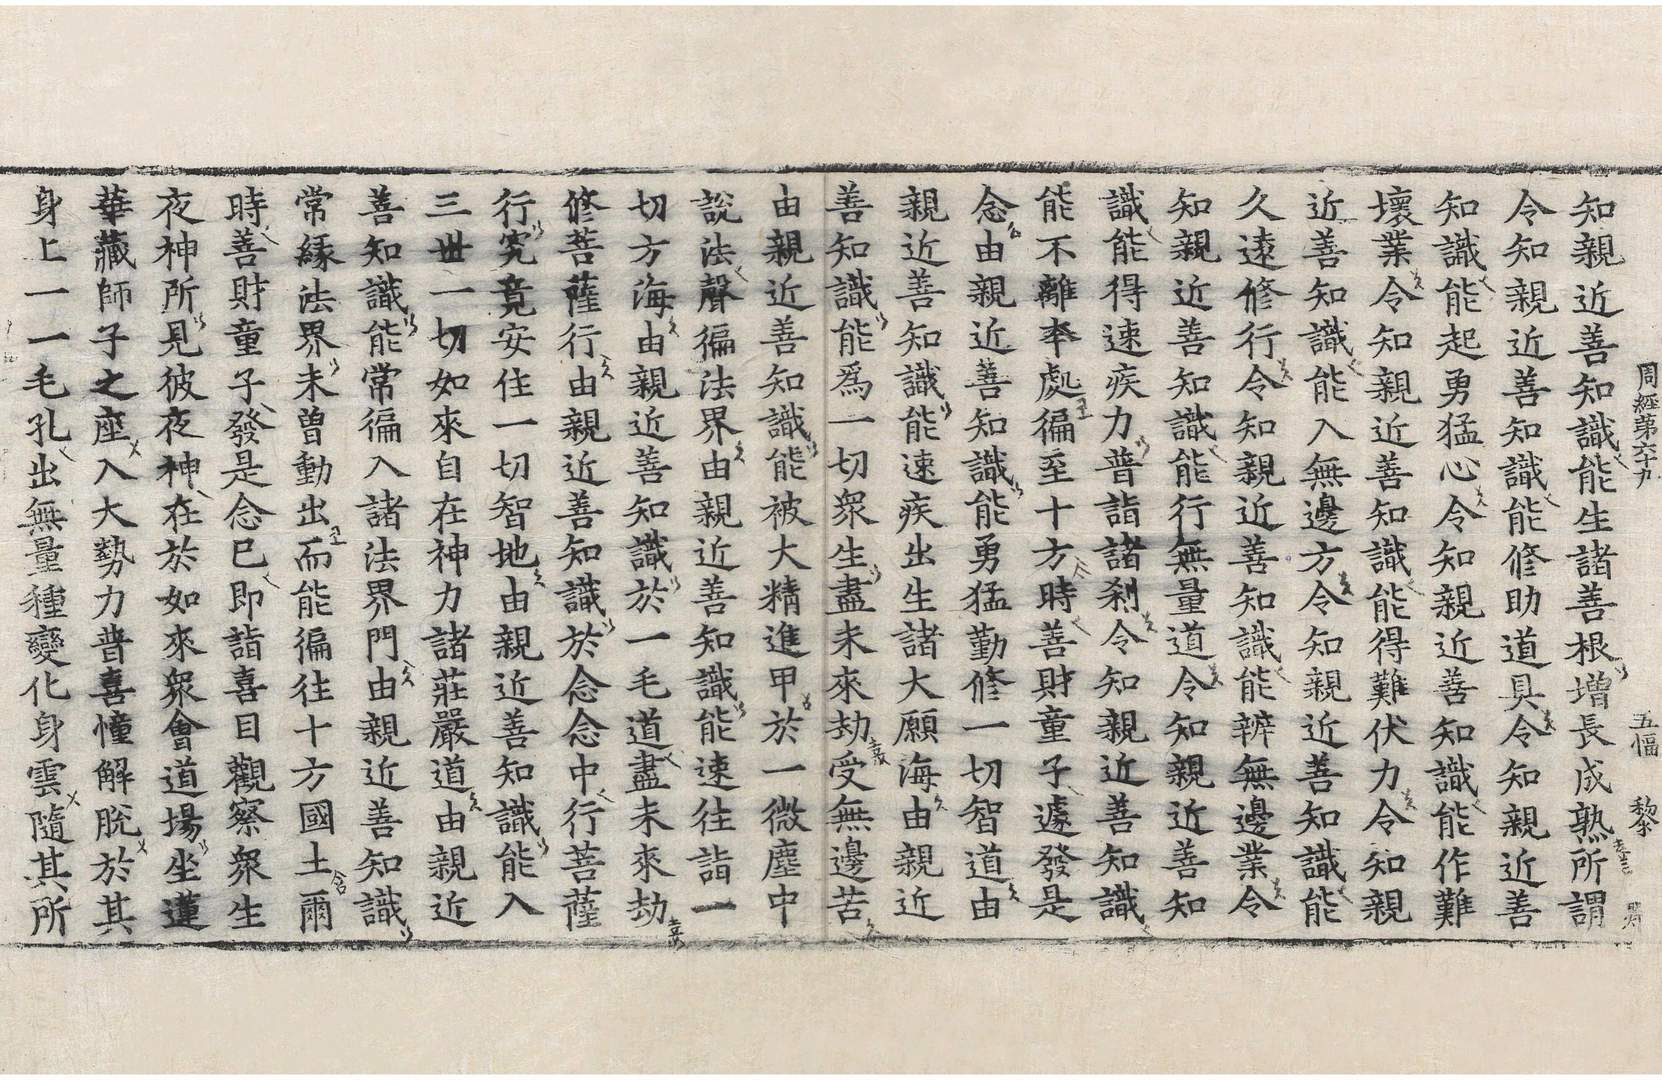 周經第六十九　五幅　黎
知親近善知識能生諸善根增長成熟所謂
令知親近善知識能修助道具令知親近善
知識能起勇猛心令知親近善知識能作難
壞業令知親近善知識能得難伏力令知親
近善知識能入無邊方令知親近善知識能
久遠修行令知親近善知識能辨無邊業令
知親近善知識能行無量道令知親近善知
識能得速疾力普詣諸刹令知親近善知識
能不離本處徧至十方時善財童子遽發是
念由親近善知識能勇猛勤修一切智道由
親近善知識能速疾出生諸大願海由親近
善知識能爲一切衆生盡未來劫受無邊苦
由親近善知識能被大精進甲於一微塵中
說法聲徧法界由親近善知識能速往詣一
切方海由親近善知識於一毛道盡未來劫
修菩薩行由親近善知識於念念中行菩薩
行究竟安住一切智地由親近善知識能入
三世一切如來自在神力諸莊嚴道由親近
善知識能常徧入諸法界門由親近善知識
常緣法界未曾動出而能徧往十方國土爾
時善財童子發是念已即詣喜目觀察衆生
夜神所見彼夜神在於如來衆會道場坐蓮
華藏師子之座入大勢力普喜幢解脫於其
身上一一毛孔出無量種變化身雲隨其所